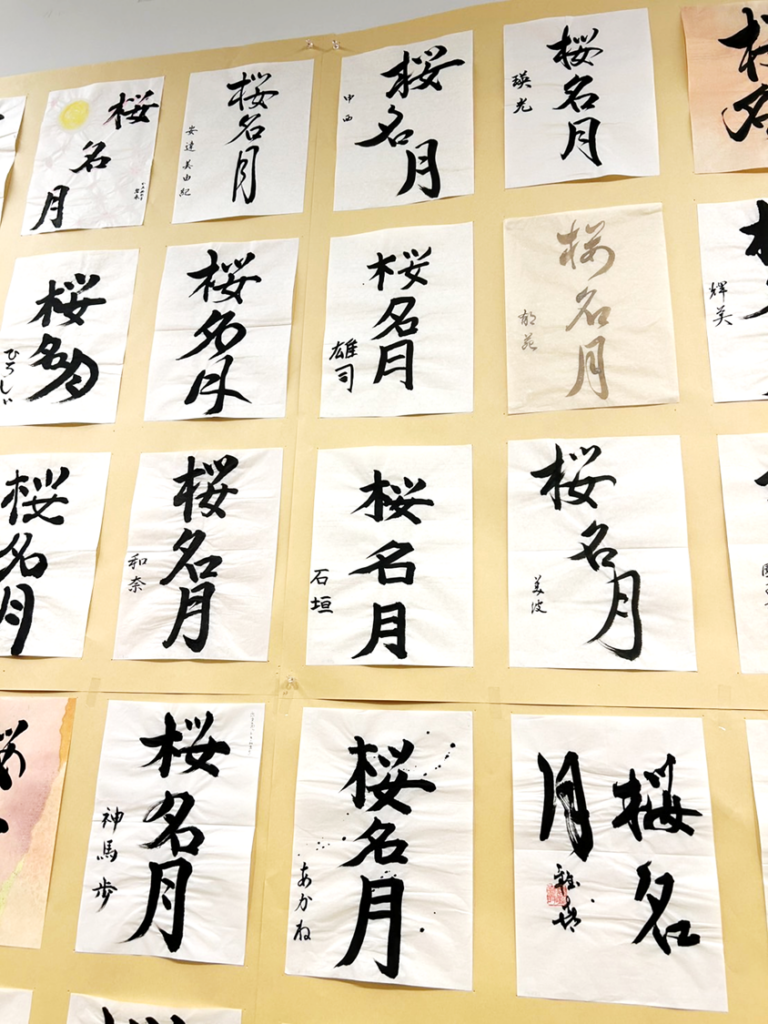 桜
名
月
桜名月
安達美由紀
桜名月
中西
桜名月
瑛光
桜名月
ひろしい
桜名月
桜名月
雄司
桜名月
郁苑
輝美
桜名月
桜名月
和奈
桜名月
石垣
桜名月
美波
桜名月
神馬歩
桜名月
あかね
桜名
月